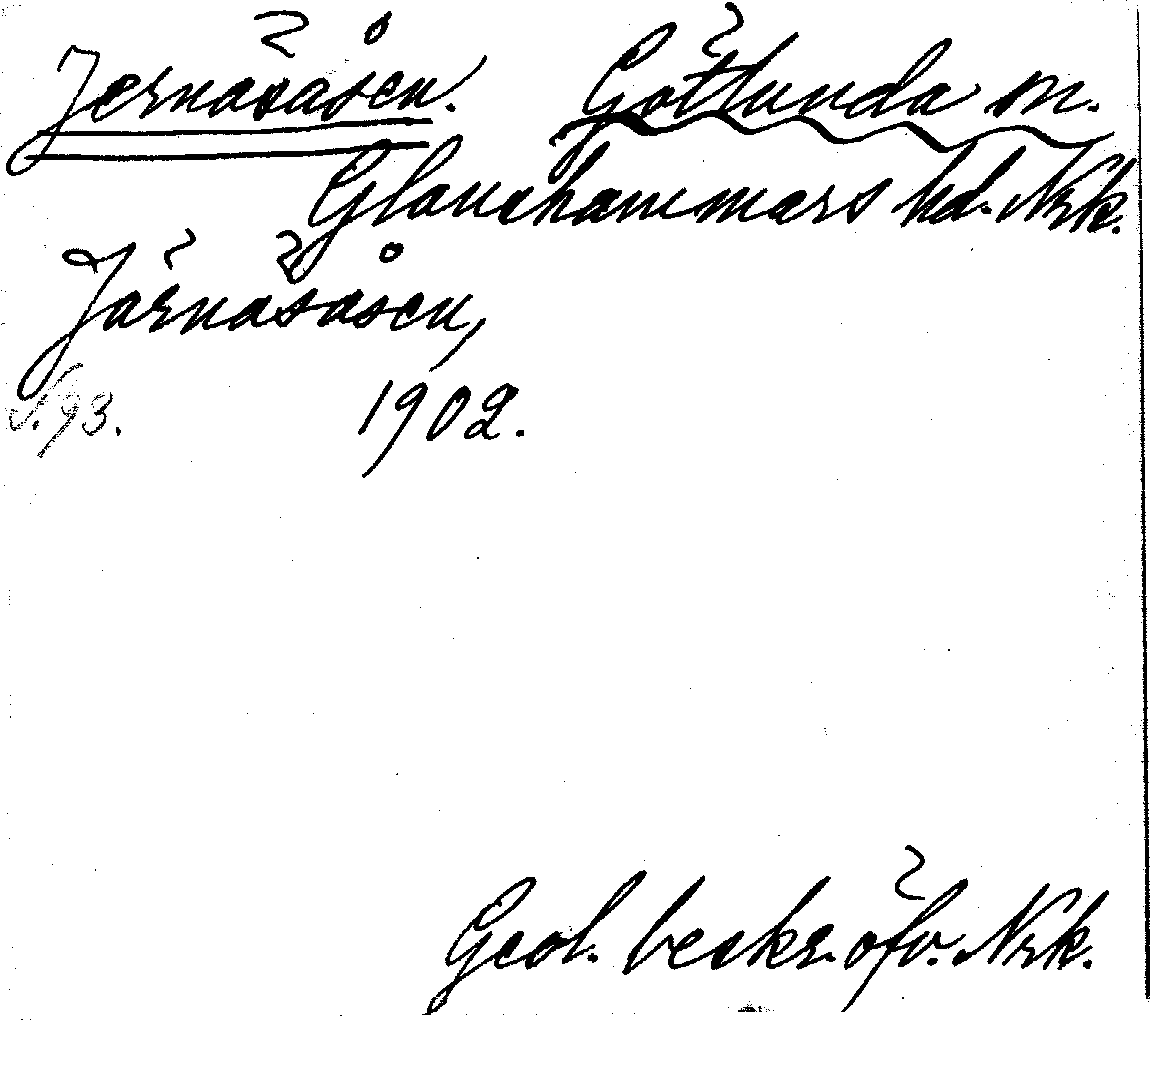 Jernäsåsen. Götlunda sn.
Glanshammars hd. Nrk.
Järnäsåsen,
S. 93. 1902.
Geol. beskr. öfv. Nrk.